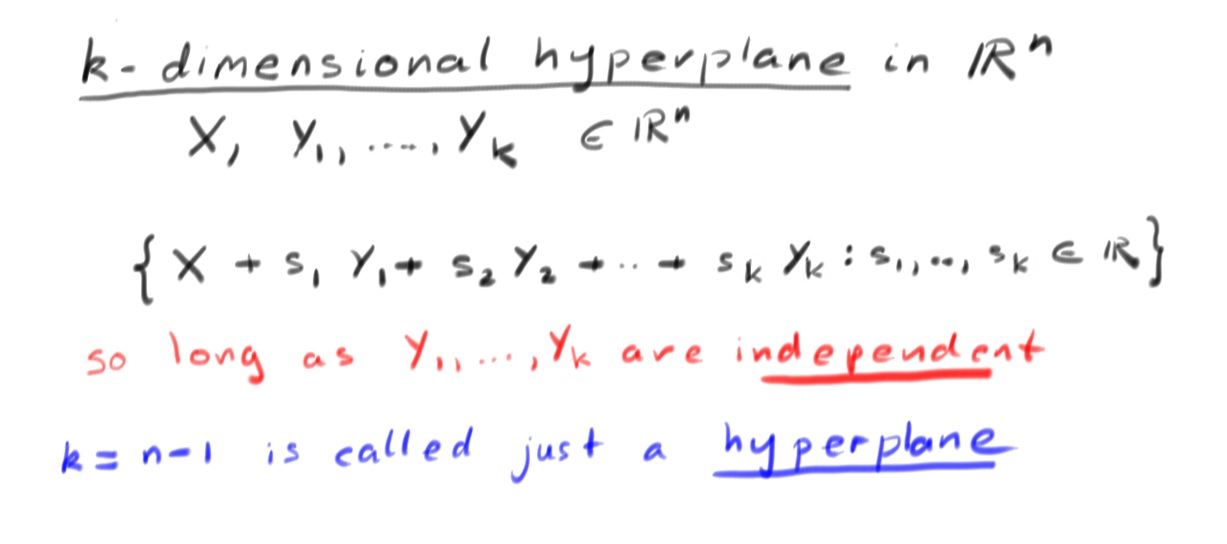 k-dimensional hyperplane in ℝⁿ
X, Y₁, ...., Yₖ ∈ ℝⁿ
{ X + s₁ Y₁ + s₂ Y₂ + ... + sₖ Yₖ : s₁, ..., sₖ ∈ ℝ }
so long as Y₁, ..., Yₖ are independent
k = n-1 is called just a hyperplane